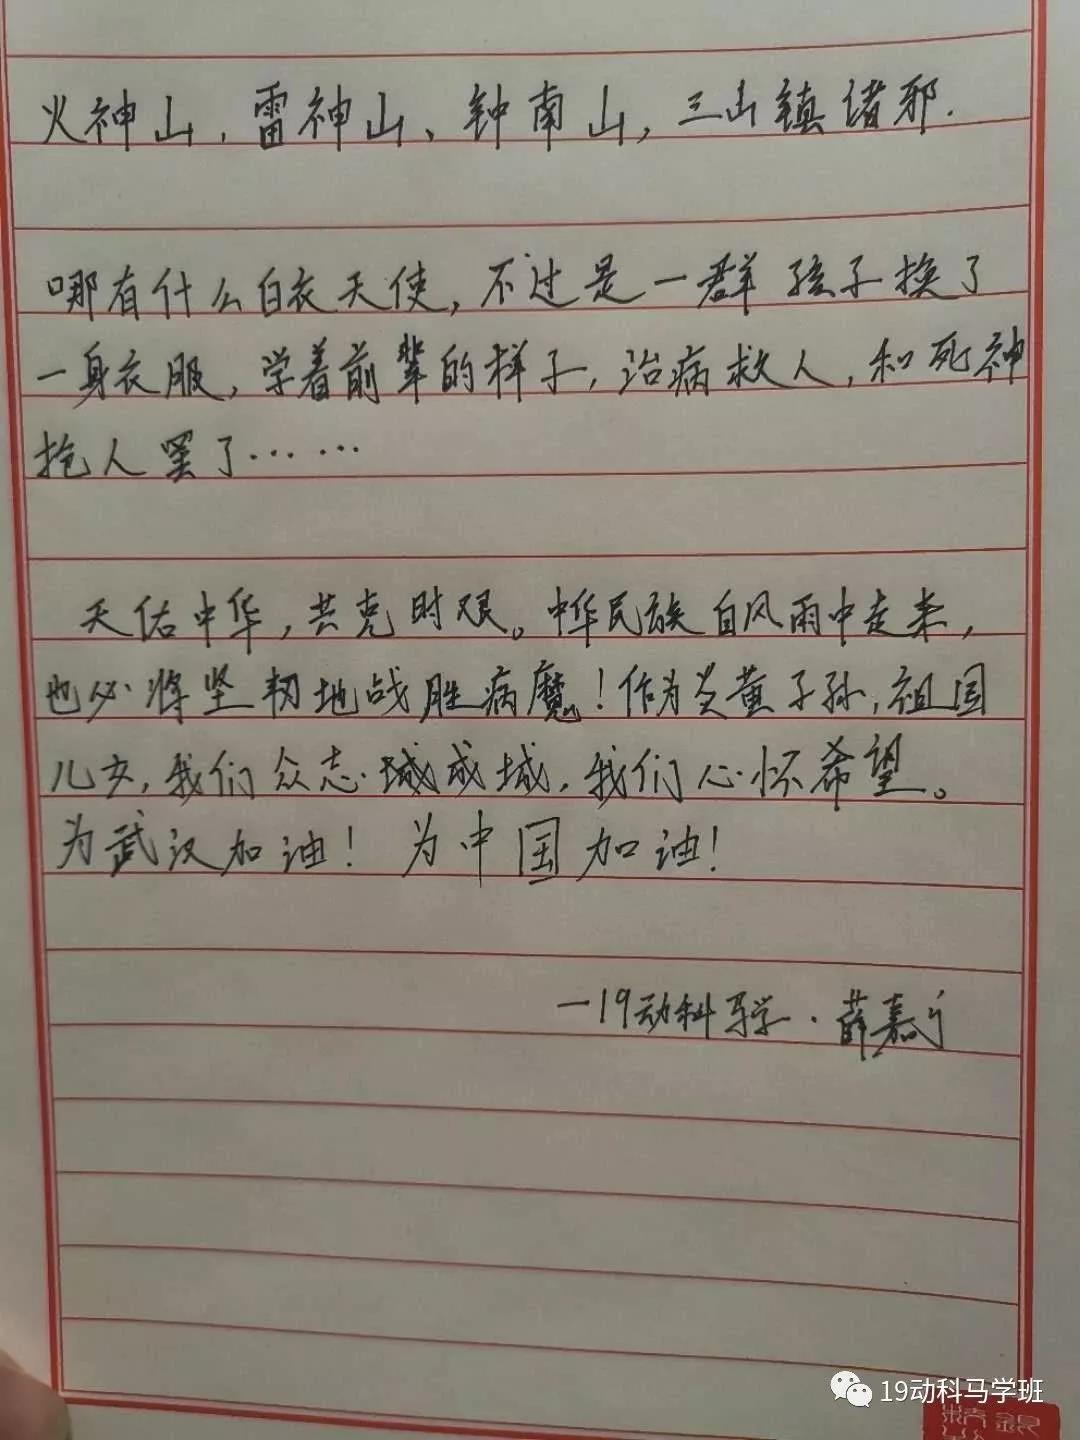 火神山、雷神山、钟南山，三山镇诸邪.
哪有什么白衣天使，不过是一群孩子换了
一身衣服，学着前辈的样子，治病救人，和死神
抢人罢了……
天佑中华，共克时艰。中华民族自风雨中走来，
也必将坚韧地战胜病魔！作为炎黄子孙，祖国
儿女，我们众志城成城，我们心怀希望。
为武汉加油！为中国加油！
—19动科马学·薛嘉
19动科马学班